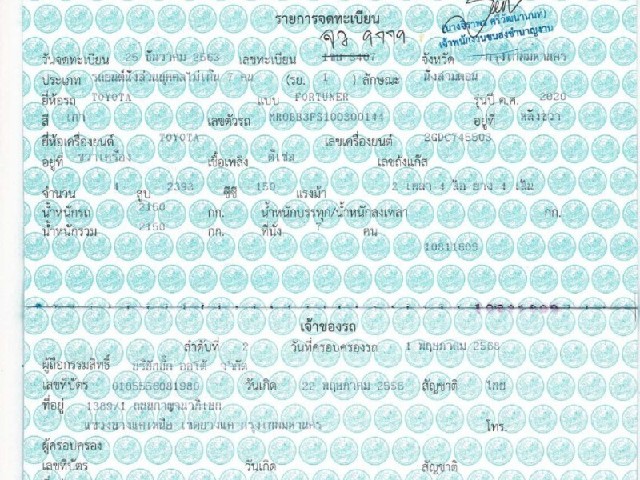 รายการจดทะเบียน
เจ้าพนักงานขนส่งชำนาญงาน
วันจดทะเบียน 25 ธันวาคม 2563 เลขทะเบียน จังหวัด กรุงเทพมหานคร
ประเภท รถยนต์นั่งส่วนบุคคลไม่เกิน 7 คน (รย. 1 ) ลักษณะ นั่งสามตอน
ยี่ห้อรถ TOYOTA แบบ FORTUNER รุ่นปี ค.ศ. 2020
สี เทา เลขตัวรถ อยู่ที่ หลังขวา
ยี่ห้อเครื่องยนต์ TOYOTA เลขเครื่องยนต์
อยู่ที่ ขวาเครื่อง เชื้อเพลิง ดีเซล เลขถังแก๊ส
จำนวน 4 สูบ 2393 ซีซี 150 แรงม้า 2 เพลา 4 ล้อ ยาง 4 เส้น
น้ำหนักรถ 2150 กก. น้ำหนักบรรทุก/น้ำหนักลงเพลา กก.
น้ำหนักรวม 2150 กก. ที่นั่ง 7 คน
เจ้าของรถ
ลำดับที่ 2 วันที่ครอบครองรถ 1 พฤษภาคม
ผู้ถือกรรมสิทธิ์
เลขที่บัตร วันเกิด 22 พฤษภาคม 2558 สัญชาติ ไทย
ที่อยู่ 1389/1 ถนนกาญจนาภิเษก
แขวงบางแคเหนือ เขตบางแค กรุงเทพมหานคร โทร.
ผู้ครอบครอง
เลขที่บัตร วันเกิด สัญชาติ